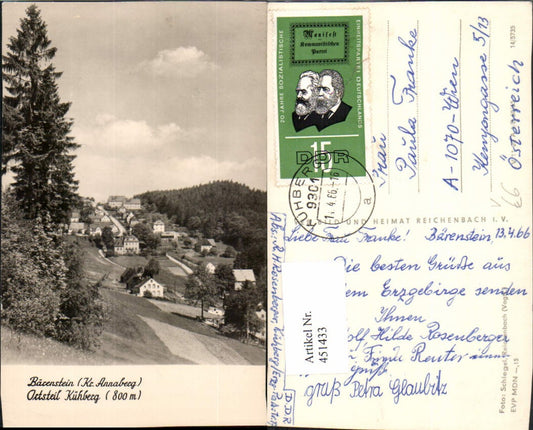 Bärenstein (Kr. Annaberg)
Ortsteil Kühberg (800 m)
20 JAHRE SOZIALISTISCHE
EINHEITSPARTEI DEUTSCHLANDS
Manifest
Kommunistischen
Partei
15
DDR
KÜHBERG
9301
a
Frau
Paula Franke
A-1070-Wien
Kenyongasse 5/13
Österreich
66
14/5735
BILD UND HEIMAT REICHENBACH I. V.
Liebe Frau Franke! Bärenstein, 13.4.66
Die besten Grüße aus
dem Erzgebirge senden
Ihnen
Hilde Rosenberger
Reuter
gruß
gruß Petra Glaubitz
Rosenberger, Kühberg
D.D.R
Artikel Nr.
451433
Foto: Schlegel, Reichenbach (Vogtl.)
EVP MDN -,15